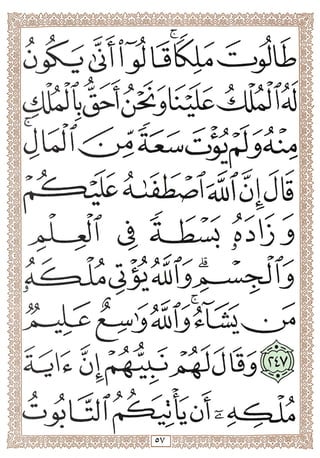 طَالُوتَ مَلِكًا ۚ قَالُوٓا۟ أَنَّىٰ يَكُونُ
لَهُ ٱلْمُلْكُ عَلَيْنَا وَنَحْنُ أَحَقُّ بِٱلْمُلْكِ
مِنْهُ وَلَمْ يُؤْتَ سَعَةً مِّنَ ٱلْمَالِ ۚ
قَالَ إِنَّ ٱللَّهَ ٱصْطَفَىٰهُ عَلَيْكُمْ
وَزَادَهُۥ بَسْطَةً فِى ٱلْعِلْمِ
وَٱلْجِسْمِ ۖ وَٱللَّهُ يُؤْتِى مُلْكَهُۥ
مَن يَشَآءُ ۚ وَٱللَّهُ وَٰسِعٌ عَلِيمٌ
٢٤٧ وَقَالَ لَهُمْ نَبِيُّهُمْ إِنَّ ءَايَةَ
مُلْكِهِۦٓ أَن يَأْتِيَكُمُ ٱلتَّابُوتُ
٥٧